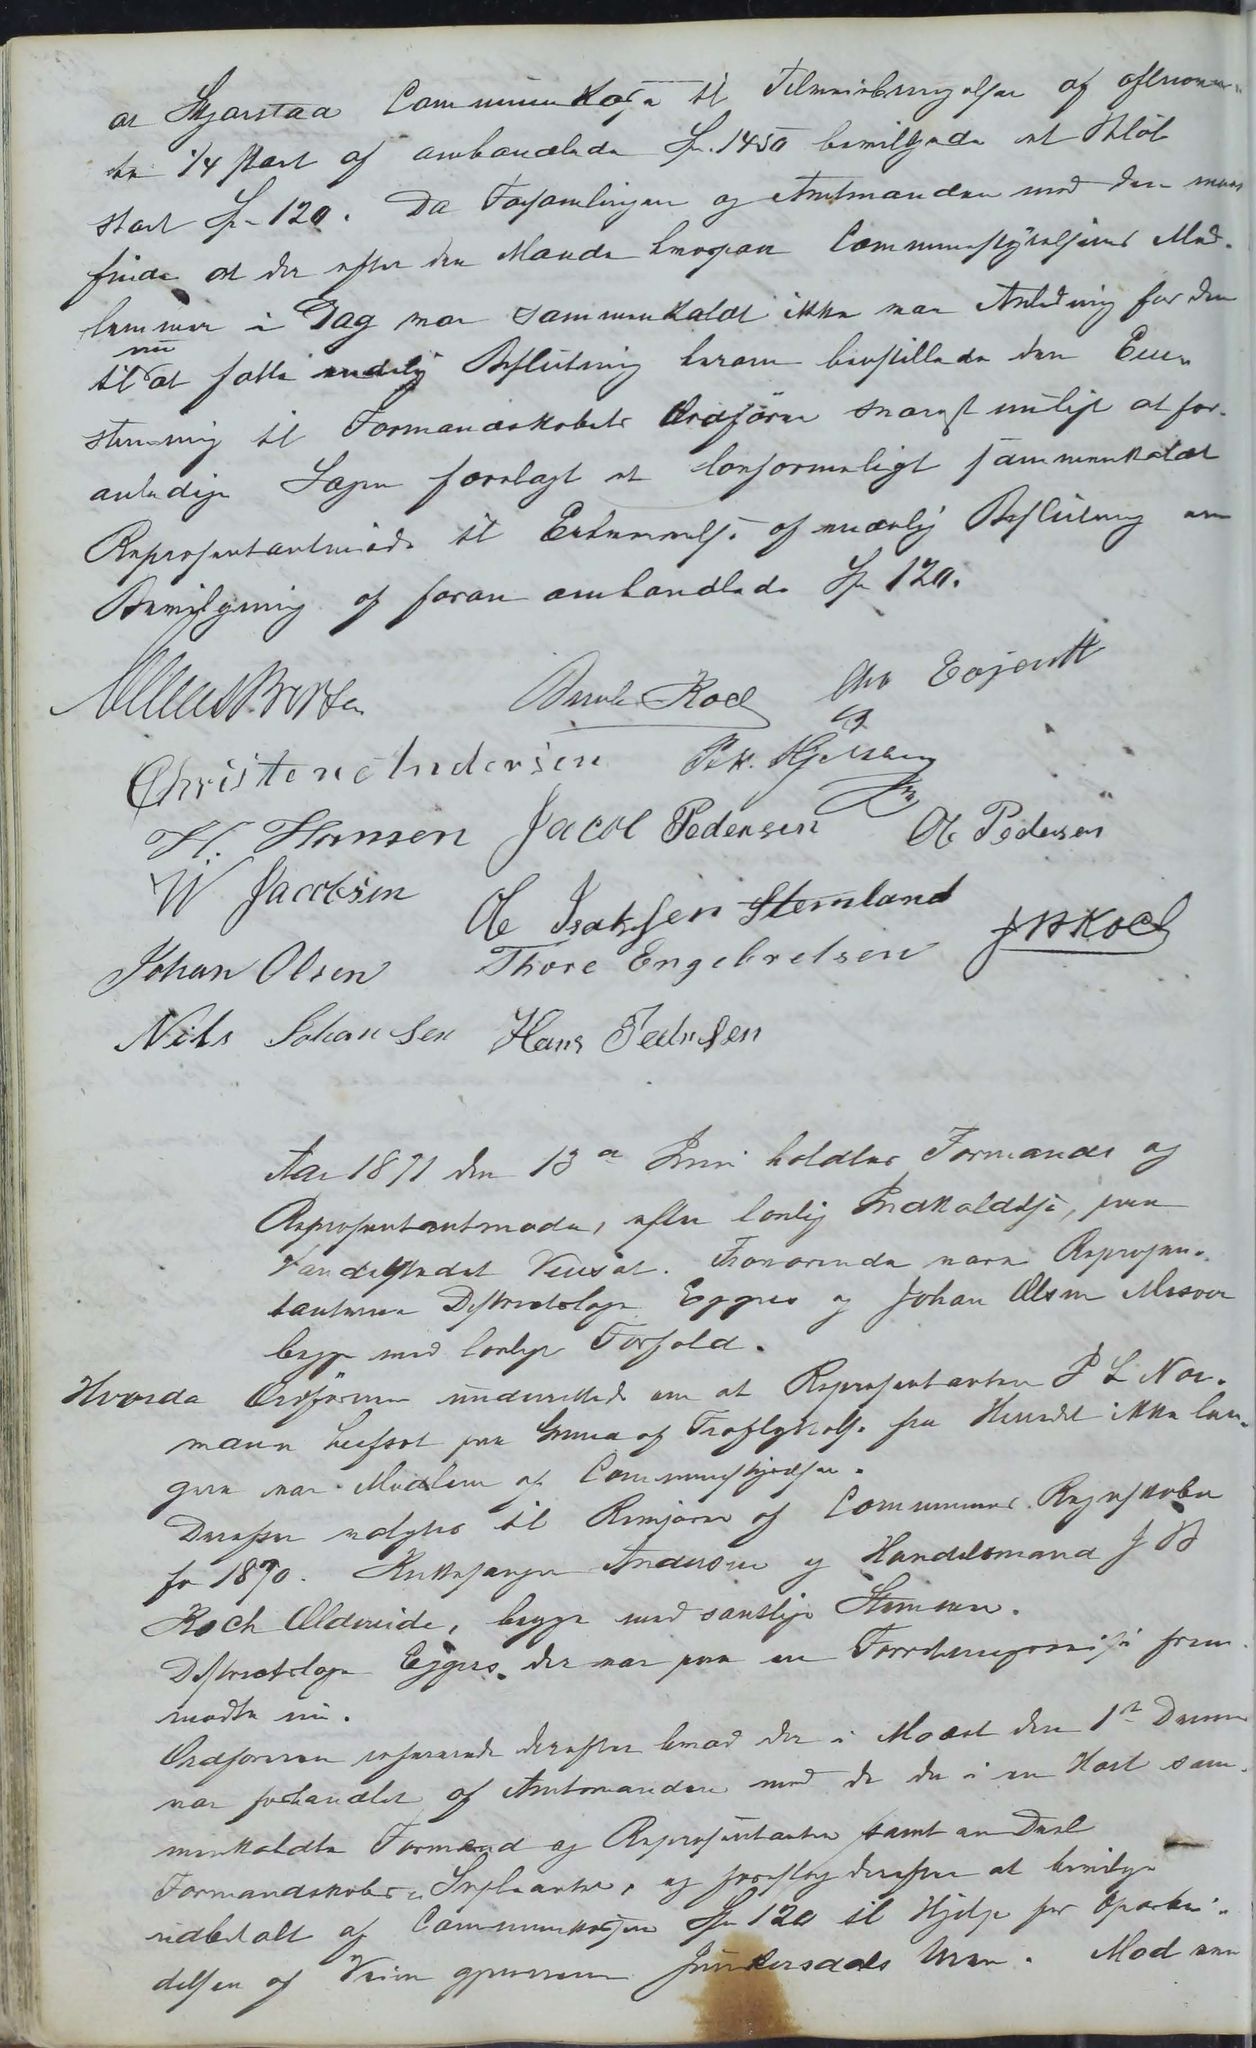 at Skjerstad Communekasse til Tilveiebringelse af ofte
te 1/4 Part af ombandlede Sp. 1450 bevilgede et Beløb
stort Sp 120. Da Forsamlingen og Amtmanden med den maa
finde at der efter den Maade hvorpaa Communestyrelsens Med-
lemmer i Dag var sammenkaldt ikke var Anledning for den
til nu at fatte endelig Beslutning herom henstillede den
til Formandskabets Ordfører snarest muligt at for-
anledige Sagen forelagt et lovformeligt sammenkaldt
Representantmøde til af endelig Beslutning om
Bevilgning af foran omhandlede Sp 120.
Koch
Christen Andersen
H. Hansen Jacob Pedersen Ole Pedersen
W Jacobsen Ole Isaksen Stemland
Johan Olsen Thore Engebretsen J B Koch
Nils Johansen Hans Pedersen
Aar 1871 den 13de Juni holdtes Formands og
Representantmøde, efter lovlig Indkaldelse, paa
Vandelstedet Venset. Fraværende vare Represen-
tanterne Districtslæge Egges og Johan Olsen Misvær
begge med lovligt Forfald.
Hvorda Ordføreren underrettede om at Representanten P L Nor-
mann paa Grund af Fraflyttelse fra Herredet ikke læn-
gere var Medlem af Communestyrelsen.
Derefter valgtes til Revisorer af Communens Regnskaber
for 1870. Kirkesanger Andersen og Handelsmand J B
Koch Oldereide, begge med samtlige Stemmer.
Districtslæge Egges, der var paa en Forretningsreise frem-
mødte nu.
Ordføreren refererede derefter hvad der i Mødet den 1ste Dennes
var forhandlet af Amtmanden med de der i en Hast sam-
menkaldte Formænd og Representanter samt en Deel
Formandskabs-Supleanter, og foreslog derefter at bevilge
udbetalt af Communekassen Sp 120 til Hjelp for Oparbei-
delsen af Veien gjennem Junkersdals Uren. Mod